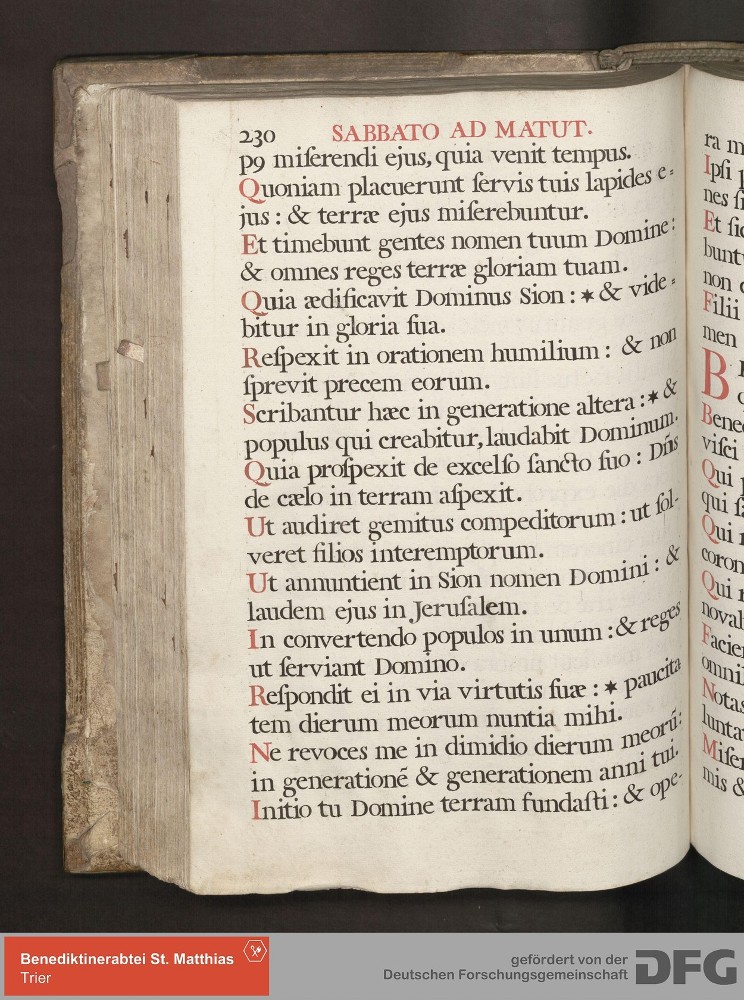 230 SABBATO AD MATUT.
p9 miſerendi ejus, quia venit tempus.
Quoniam placuerunt ſervis tuis lapides e-
jus : & terræ ejus miſerebuntur.
Et timebunt gentes nomen tuum Domine:
& omnes reges terræ gloriam tuam.
Quia ædificavit Dominus Sion : ✶ & vide-
bitur in gloria ſua.
Reſpexit in orationem humilium : & non
ſprevit precem eorum.
Scribantur hæc in generatione altera : ✶ &
populus qui creabitur, laudabit Dominum.
Quia proſpexit de excelſo ſancto ſuo : Dn̄s
de cælo in terram aſpexit.
Ut audiret gemitus compeditorum : ut ſol-
veret filios interemptorum.
Ut annuntient in Sion nomen Domini : &
laudem ejus in Jeruſalem.
In convertendo populos in unum : & reges
ut ſerviant Domino.
Reſpondit ei in via virtutis ſuæ : ✶ paucita
tem dierum meorum nuntia mihi.
Ne revoces me in dimidio dierum meorū:
in generationē & generationem anni tui.
Initio tu Domine terram fundaſti : & ope-
ra m
Ipſi p
nes ſi
Et ſic
buntu
non d
Filii
men
B
Bened
viſci
Qui p
qui ſa
Qui r
coron
Qui r
novab
Facien
omni
Notas
lunta
Miſer
mis &
Benediktinerabtei St. Matthias
Trier
gefördert von der
Deutschen Forschungsgemeinschaft
DFG